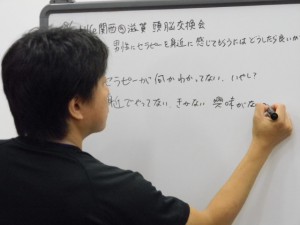 関西@滋賀 頭脳交換会
男性にセラピーを身近に感じてもらうにはどうしたら良いか
セラピーが何かわかってない、いやし?
でやってない、きかない 興味がな